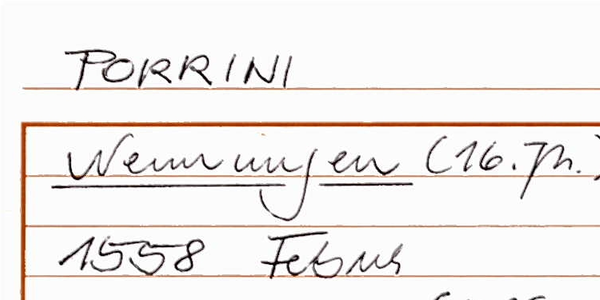 PORRINI
Wemmingen (16. Jh.)
1558 Februar